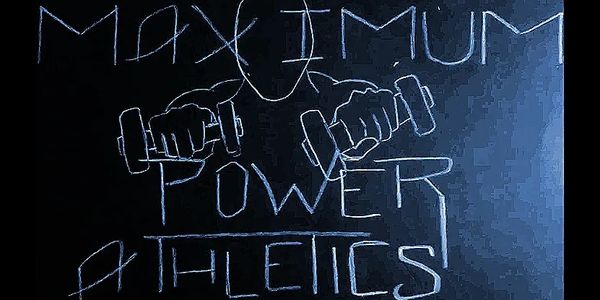 MAXIMUM
POWER
ATHLETICS